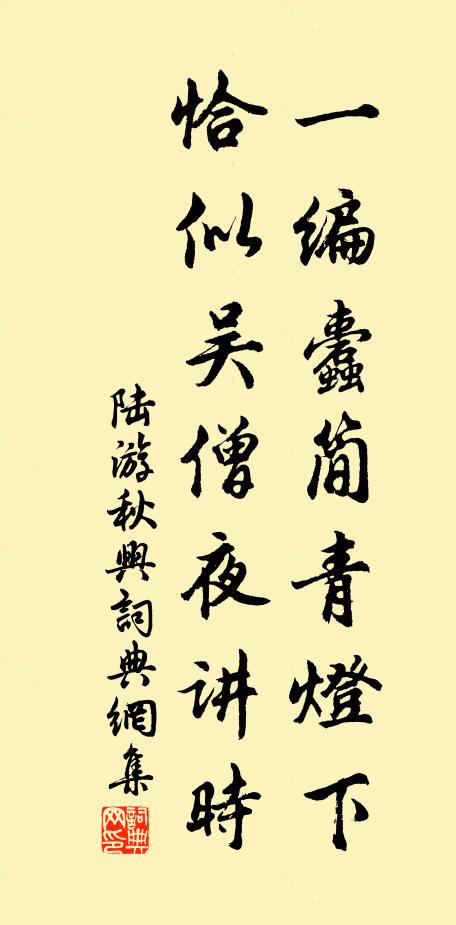 一编蠹简青燈下
恰似吴僧夜讲時
陆游秋興詞典網集
詞典网印